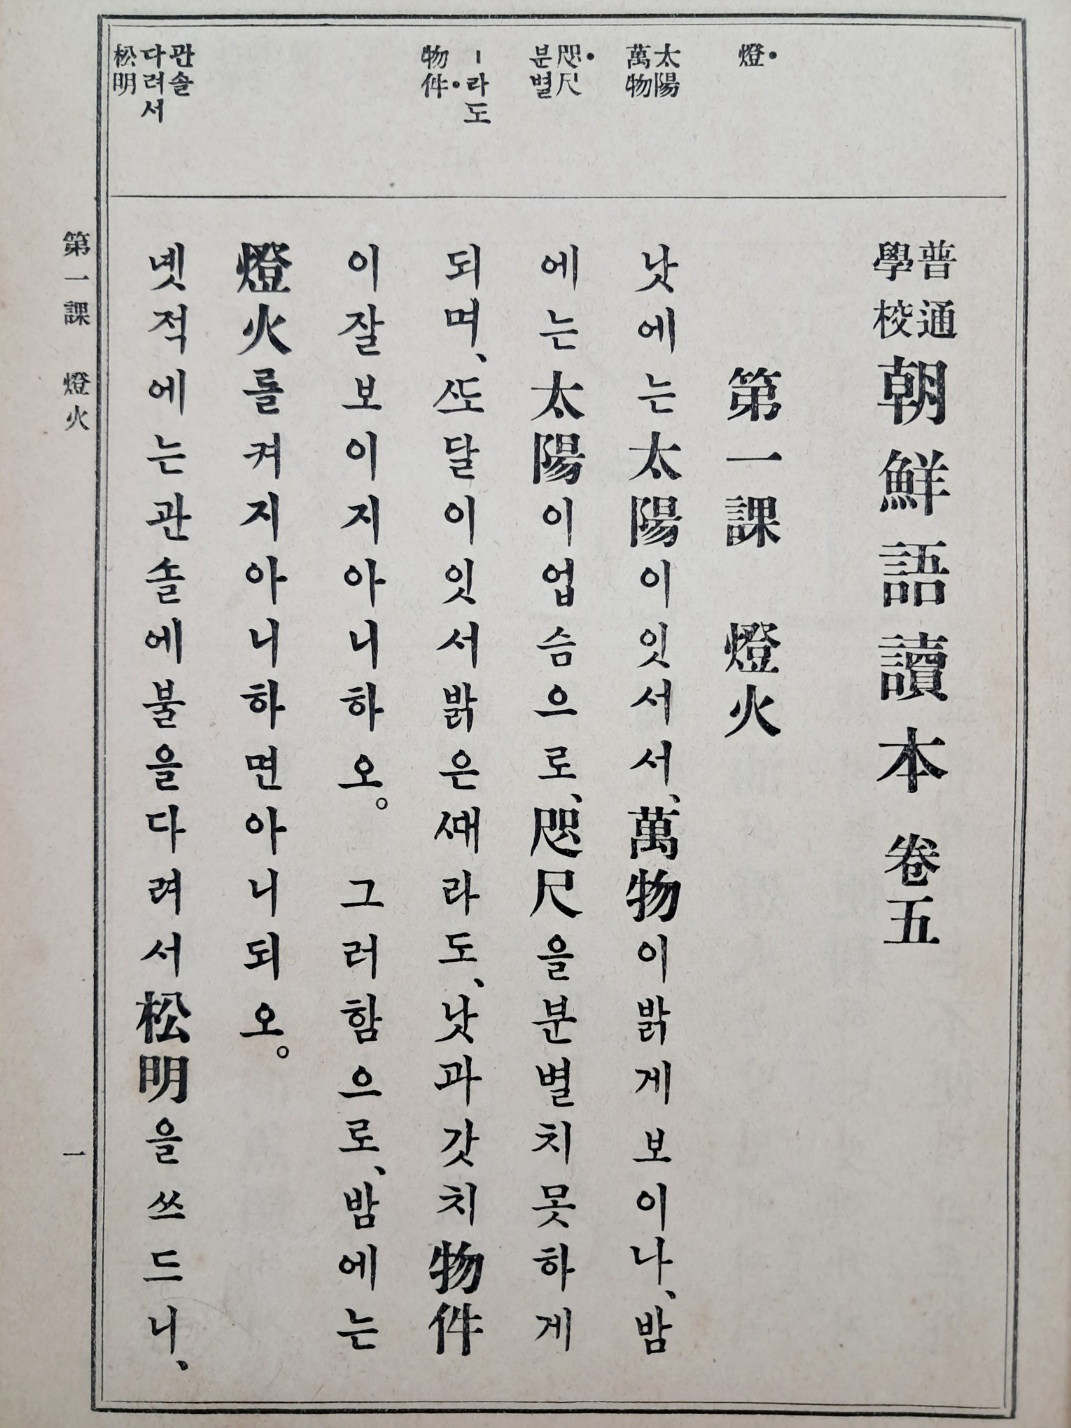 燈
太陽
萬物
咫尺
분별
ㅣ라도
物件
관솔
다려서
松明
普通
學校
朝鮮語讀本 卷五
第一課 燈火
낫에는太陽이잇서서、萬物이밝게보이나、밤
에는太陽이업슴으로、咫尺을분별치못하게
되며、ᄯᅩ달이잇서밝은ᄯᅢ라도、낫과갓치物件
이잘보이지아니하오。 그러함으로、밤에는
燈火를켜지아니하면아니되오。
녯적에는관솔에불을다려서松明을쓰드니、
第一課 燈火
一